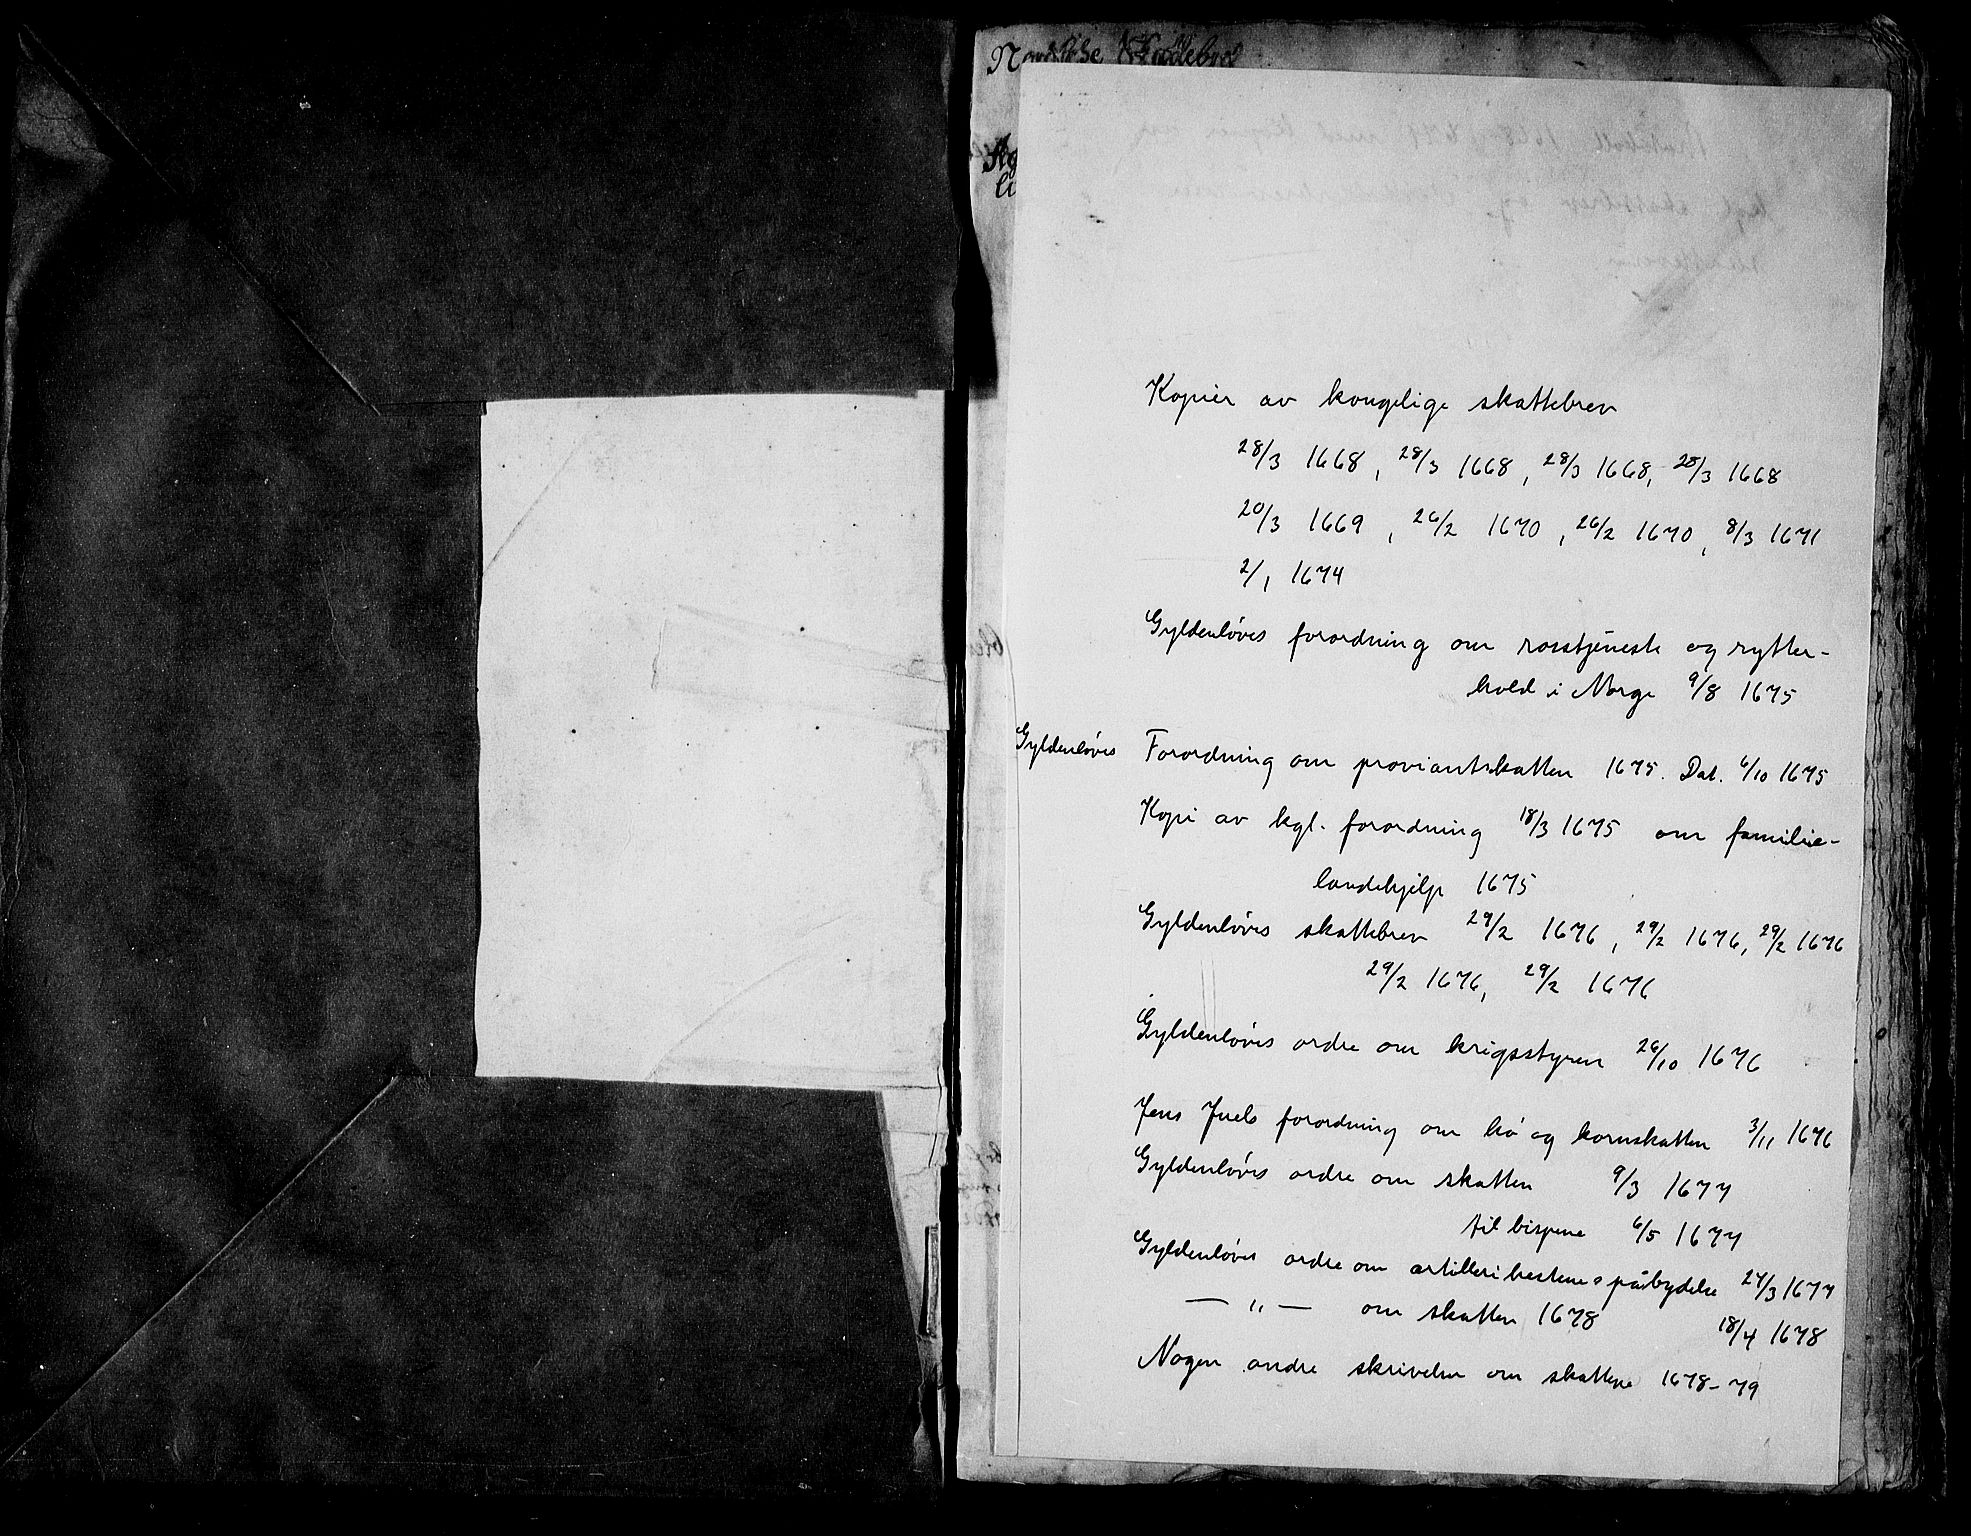 Kopier av kongelige skattebrev
28/3 1668, 28/3 1668, 28/3 1668, 28/3 1668
20/3 1669, 26/2 1670, 26/2 1670, 8/3 1671
2/1 1674
Gyldenløves forordning om rosstjeneste og rytter-
hold i Norge 9/8 1675
Gyldenløves Forordning om proviantskatten 1675. Dat. 6/10 1675
Kopi av kgl. forordning 18/3 1675 om familie-
landehjelp 1675
Gyldenløves skattebrev 29/2 1676, 29/2 1676, 29/2 1676
29/2 1676, 29/2 1676
Gyldenløves ordre om krigsstyren 26/10 1676
Jens Juels forordning om hö og kornskatten 3/11 1676
Gyldenløves ordre om skatten 9/3 1677
til bispene 6/5 1677
Gyldenløves ordre om artillerihestenes påbydelse 27/3 1677
— „ — om skatten 1678 18/4 1678
Nogen andre skrivelser om skattene 1678-79